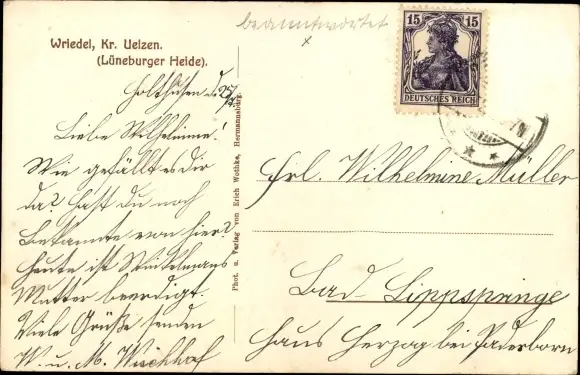 Wriedel, Kr. Uelzen.
(Lüneburger Heide).
beantwortet
x
15 15
DEUTSCHES REICH
Holthusen d. 25/
Liebe Wilhelmine!
Wie gefällt es dir
da? Hast du noch
Bekannte von hier?
Heute ist Winkelmanns
Mutter beerdigt.
Viele Grüße senden
W. u. M.
Phot. u. Verlag von Erich Wothke, Hermannsburg.
Frl. Wilhelmine Müller
Bad-Lippspringe
Haus Herzog bei Paderborn